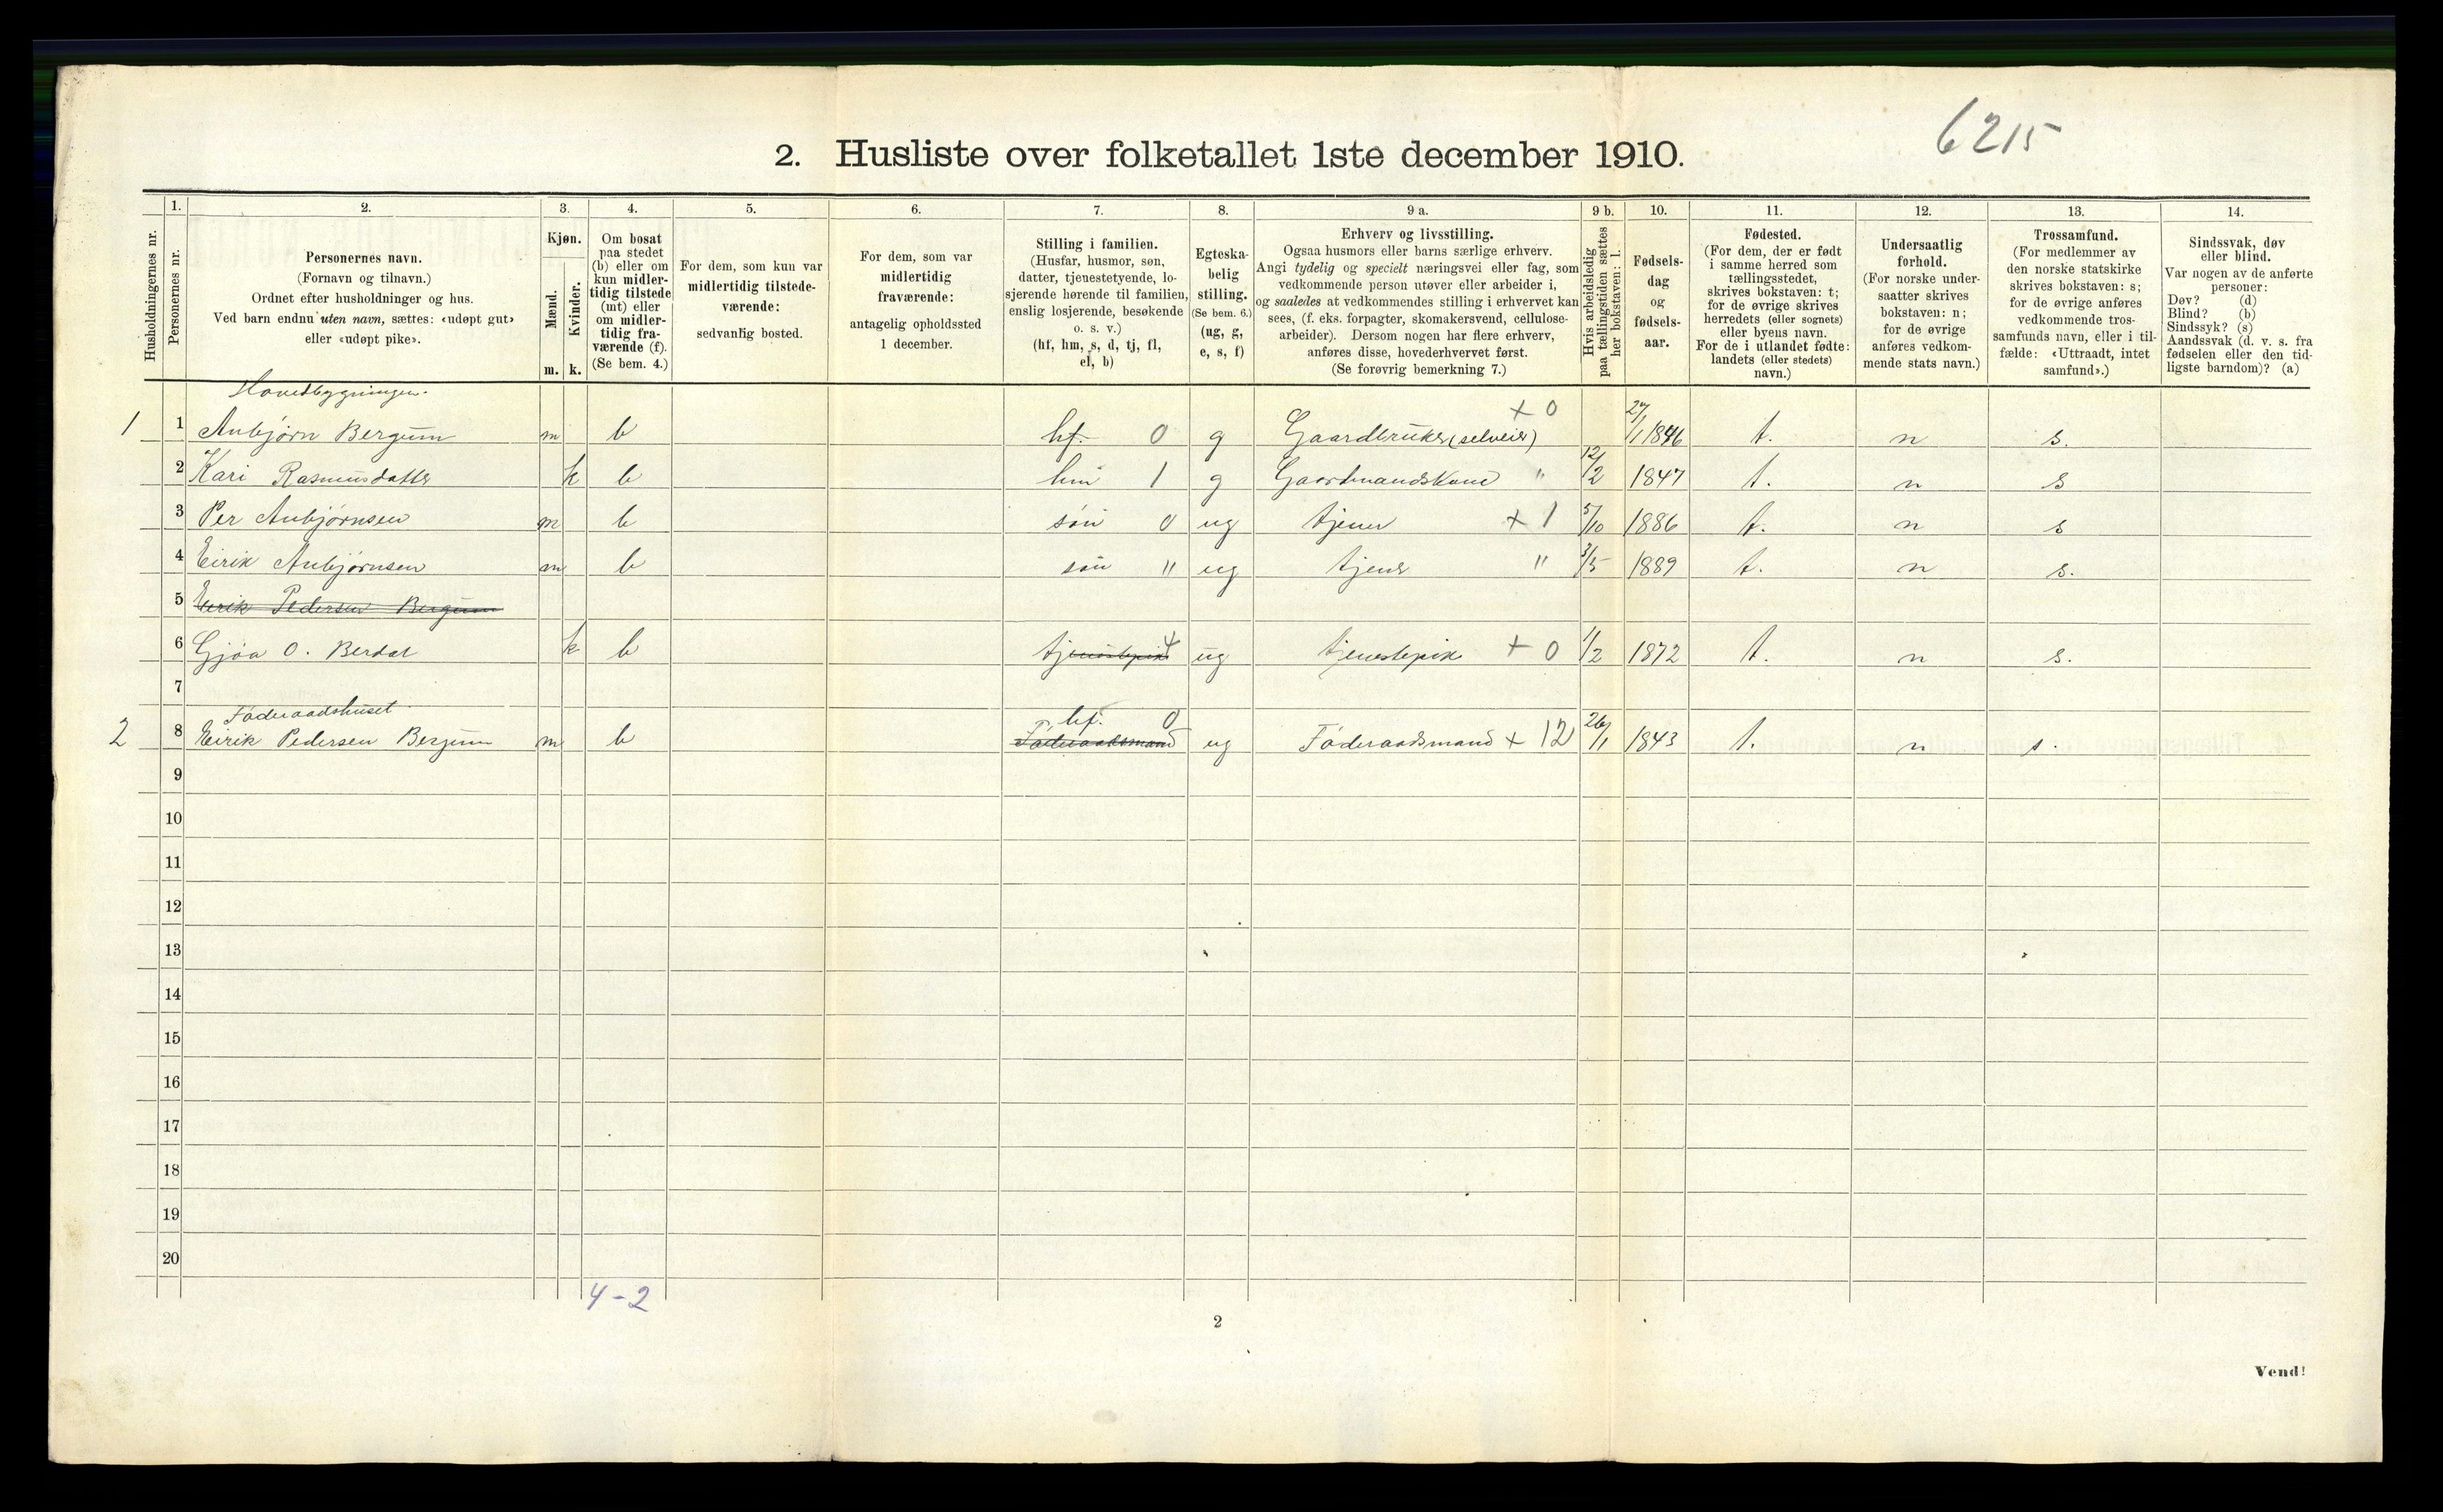 6215
2. Husliste over folketallet 1ste december 1910.
Husholdningernes nr.
1.
Personernes nr.
2.
Personernes navn.
(Fornavn og tilnavn.)
Ordnet efter husholdninger og hus.
Ved barn endnu uten navn, sættes: «udøpt gut»
eller «udøpt pike».
3.
Kjøn.
Mænd.
Kvinder.
m. k.
4.
Om bosat
paa stedet
(b) eller om
kun midler-
tidig tilstede
(mt) eller
om midler-
tidig fra-
værende (f).
(Se bem. 4.)
5.
For dem, som kun var
midlertidig tilstede-
værende:
sedvanlig bosted.
6.
For dem, som var
midlertidig
fraværende:
antagelig opholdssted
1 december.
7.
Stilling i familien.
(Husfar, husmor, søn,
datter, tjenestetyende, lo-
sjerende hørende til familien,
enslig losjerende, besøkende
o. s. v.)
(hf, hm, s, d, tj, fl,
el, b)
8.
Egteska-
belig
stilling.
(Se bem. 6.)
(ug, g,
e, s, f)
9 a.
Erhverv og livsstilling.
Ogsaa husmors eller barns særlige erhverv.
Angi tydelig og specielt næringsvei eller fag, som
vedkommende person utøver eller arbeider i,
og saaledes at vedkommendes stilling i erhvervet kan
sees, (f. eks. forpagter, skomakersvend, cellulose-
arbeider). Dersom nogen har flere erhverv,
anføres disse, hovederhvervet først.
(Se forøvrig bemerkning 7.)
9 b.
Hvis arbeidsledig
paa tællingstiden sættes
her bokstaven: l.
10.
Fødsels-
dag
og
fødsels-
aar.
11.
Fødested.
(For dem, der er født
i samme herred som
tællingsstedet,
skrives bokstaven: t;
for de øvrige skrives
herredets (eller sognets)
eller byens navn.
For de i utlandet fødte:
landets (eller stedets)
navn.)
12.
Undersaatlig
forhold.
(For norske under-
saatter skrives
bokstaven: n;
for de øvrige
anføres vedkom-
mende stats navn.)
13.
Trossamfund.
(For medlemmer av
den norske statskirke
skrives bokstaven: s;
for de øvrige anføres
vedkommende tros-
samfunds navn, eller i til-
fælde: «Uttraadt, intet
samfund».)
14.
Sindssvak, døv
eller blind.
Var nogen av de anførte
personer:
Døv? (d)
Blind? (b)
Sindssyk? (s)
Aandssvak (d. v. s. fra
fødselen eller den tid-
ligste barndom)? (a)
Hovedbygningen.
1 1 Anbjørn Bergum m b hf. 0 g Gaardbruker (selveier) + 0 27/1 1846 t. n s.
2 Kari Rasmusdatter k b hm 1 g Gaardmandskone " 12/2 1847 t. n s
3 Per Anbjørnsen m b søn 0 ug tjener + 1 5/10 1886 t. n s
4 Eirik Anbjørnsen m b søn " ug tjener " 3/5 1889 t. n s.
5 Eirik Pedersen Bergum
6 Gjøa O. Berdal k b tjenestepike 4 ug tjenestepike + 0 1/2 1872 t. n s.
7
Føderaadshuset.
2 8 Eirik Pedersen Bergum m b hf. 0 Føderaadsmand ug Føderaadsmand + 12 26/1 1843 t. n s.
9
10
11
12
13
14
15
16
17
18
19
20
4-2
2
Vend!